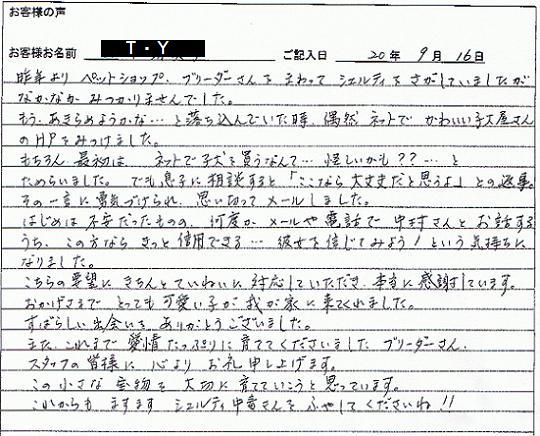 お客様の声
お客様お名前 T・Y ご記入日 20年 9月 16日
昨年より ペットショップ、ブリーダーさんを まわって シェルティを さがしていましたが
なかなか みつかりませんでした。
もう、あきらめようかな…と落ち込んでいた時、偶然 ネットで かわいい子犬屋さん
のHPをみつけました。
もちろん 最初は、 ネットで子犬を買うなんて… 怪しいかも??…と
ためらいました。 でも息子に相談すると「ここなら大丈夫だと思うよ」との返事。
その一言に勇気づけられ、思い切ってメールしました。
はじめは不安だったものの、何度か メールや 電話で 中村さんと お話する
うち、この方なら きっと 信用できる… 彼女を信じてみよう!という気持ちに
なりました。
こちらの要望に きちんと ていねいに 対応していただき、本当に 感謝しています。
おかげさまで とっても 可愛い子が 我が家に 来てくれました。
すばらしい出会いを、ありがとうございました。
また、これまで 愛情たっぷりに 育ててくださいました ブリーダーさん、
スタッフの皆様に 心より お礼申し上げます。
この小さな 宝物を 大切に育てていこうと思っています。
これからも ますます シェルティ中毒さんを ふやしてくださいね!!